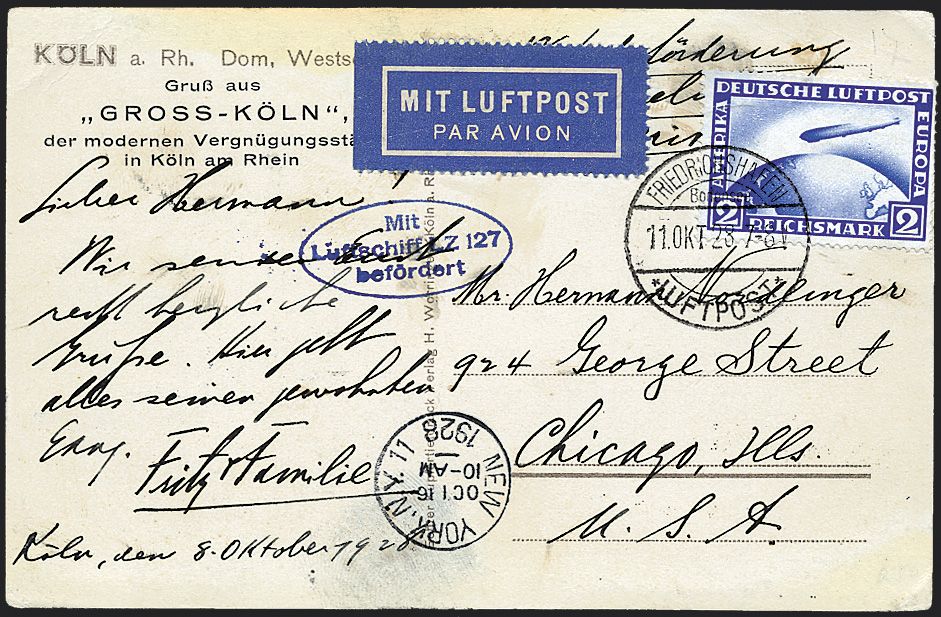 KÖLN a. Rh. Dom, Wests
Gruß aus
„GROSS-KÖLN“,
der modernen Vergnügungsstä
in Köln am Rhein
MIT LUFTPOST
PAR AVION
DEUTSCHE LUFTPOST
AMERIKA
EUROPA
2 REICHSMARK 2
FRIEDRICHSHAFEN
11.OKT 28. 7-8 V
*LUFTPOST*
Mit
Luftschiff LZ 127
befördert
Lieber Hermann!
Wir senden Euch
recht herzliche
Grüße. Hier geht
alles seinen gewohnten
Gang.
Fritz + Familie
Köln, den 8. Oktober 1928
Mr. Hermann
924 George Street
Chicago, Ills.
U. S. A.
NEW YORK, N.Y. 11
OCT 16
10-AM
1928